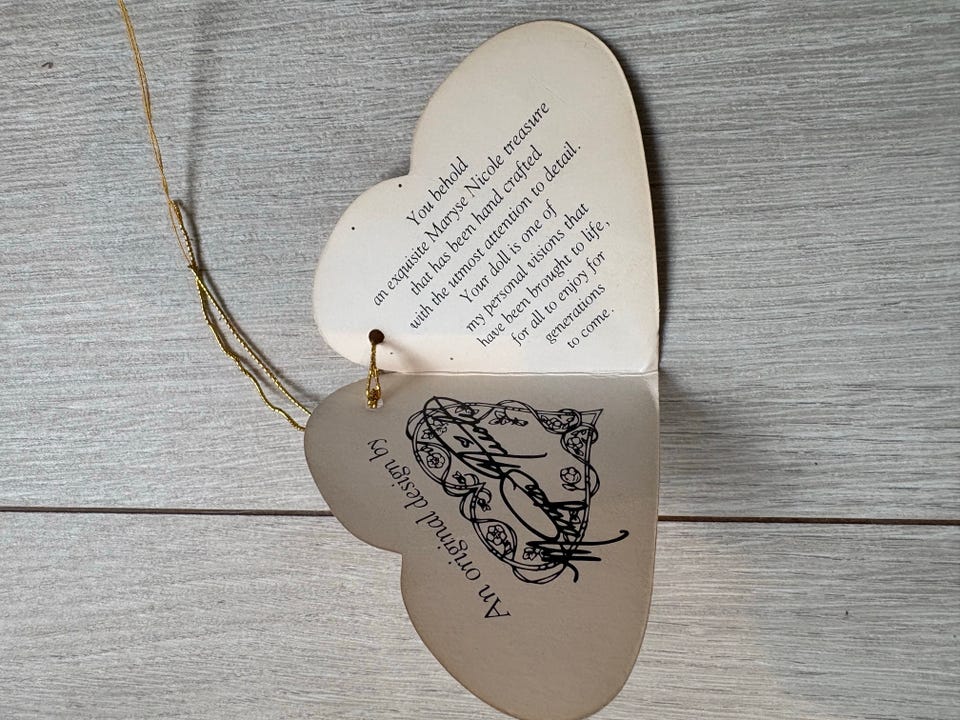 You behold
an exquisite Maryse Nicole treasure
that has been hand crafted
with the utmost attention to detail.
Your doll is one of
my personal visions that
have been brought to life,
for all to enjoy for
generations
to come.
An original design by